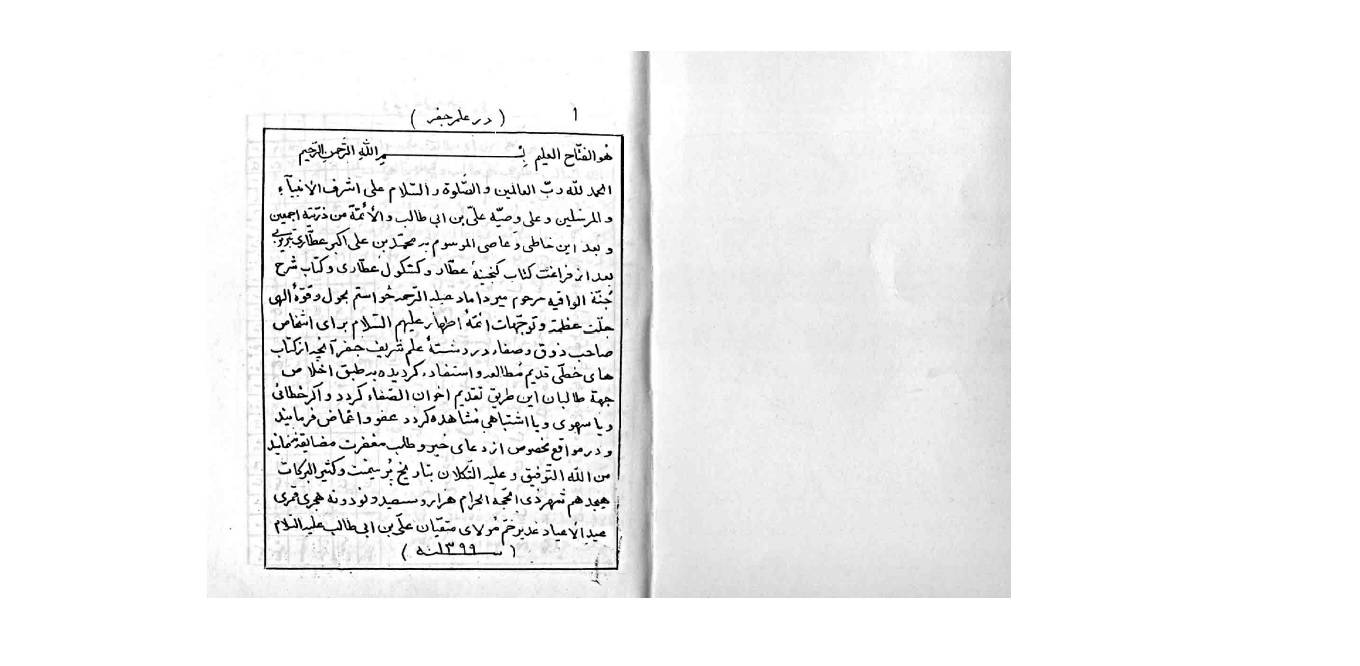 ( در علم جفر ) ۱
هُو الفتّاح العلیم بِسْمِ اللّٰهِ الرَّحمنِ الرَّحیم
الحمد للّه ربّ العالمین و الصّلوة و السّلام علی اشرف الانبیآءِ
و المرسلین و علی وصیّه علیّ بن ابی طالب و الأئمّة من ذرّیته اجمعین
و بعد این خاطی و عاصی الموسوم به محمّد بن علی اکبر عطّاری
بعد از فراغت کتاب گنجینهٔ عطّار و کشکول عطّاری و کتاب شرح
جُنّة الواقیه مرحوم میرداماد علیه الرّحمه خواستم بحول و قوّهٔ الهی
جلّت عظمته و توجّهات ائمّهٔ اطهار علیهم السّلام برای اشخاص
صاحب ذوق و صفاء در رشتهٔ علم شریف جفر آنچه از کتاب
های خطّی قدیم مُطالعه و استفاده گردیده به طبق اخلاص
جهة طالبان این طریق تقدیم اخوان الصّفاء گردد و اگر خطائی
و یا سهوی و یا اشتباهی مُشاهده گردد عفو و اغماض فرمایند
و در مواقع مخصوص از دعای خیر و طلب مغفرت مضایقه ننمایند
من اللّه التّوفیق و علیه التّکلان بتاریخ پُر میمنت و کثیر البرکات
هیجدهم شهر ذی الحجّه الحرام هزار و سیصد و نود و نه هجری قمری
عید الأعیاد غدیر خم مُولای متقیان علّی بن ابی طالب علیه السّلام
( سنه ۱۳۹۹ )